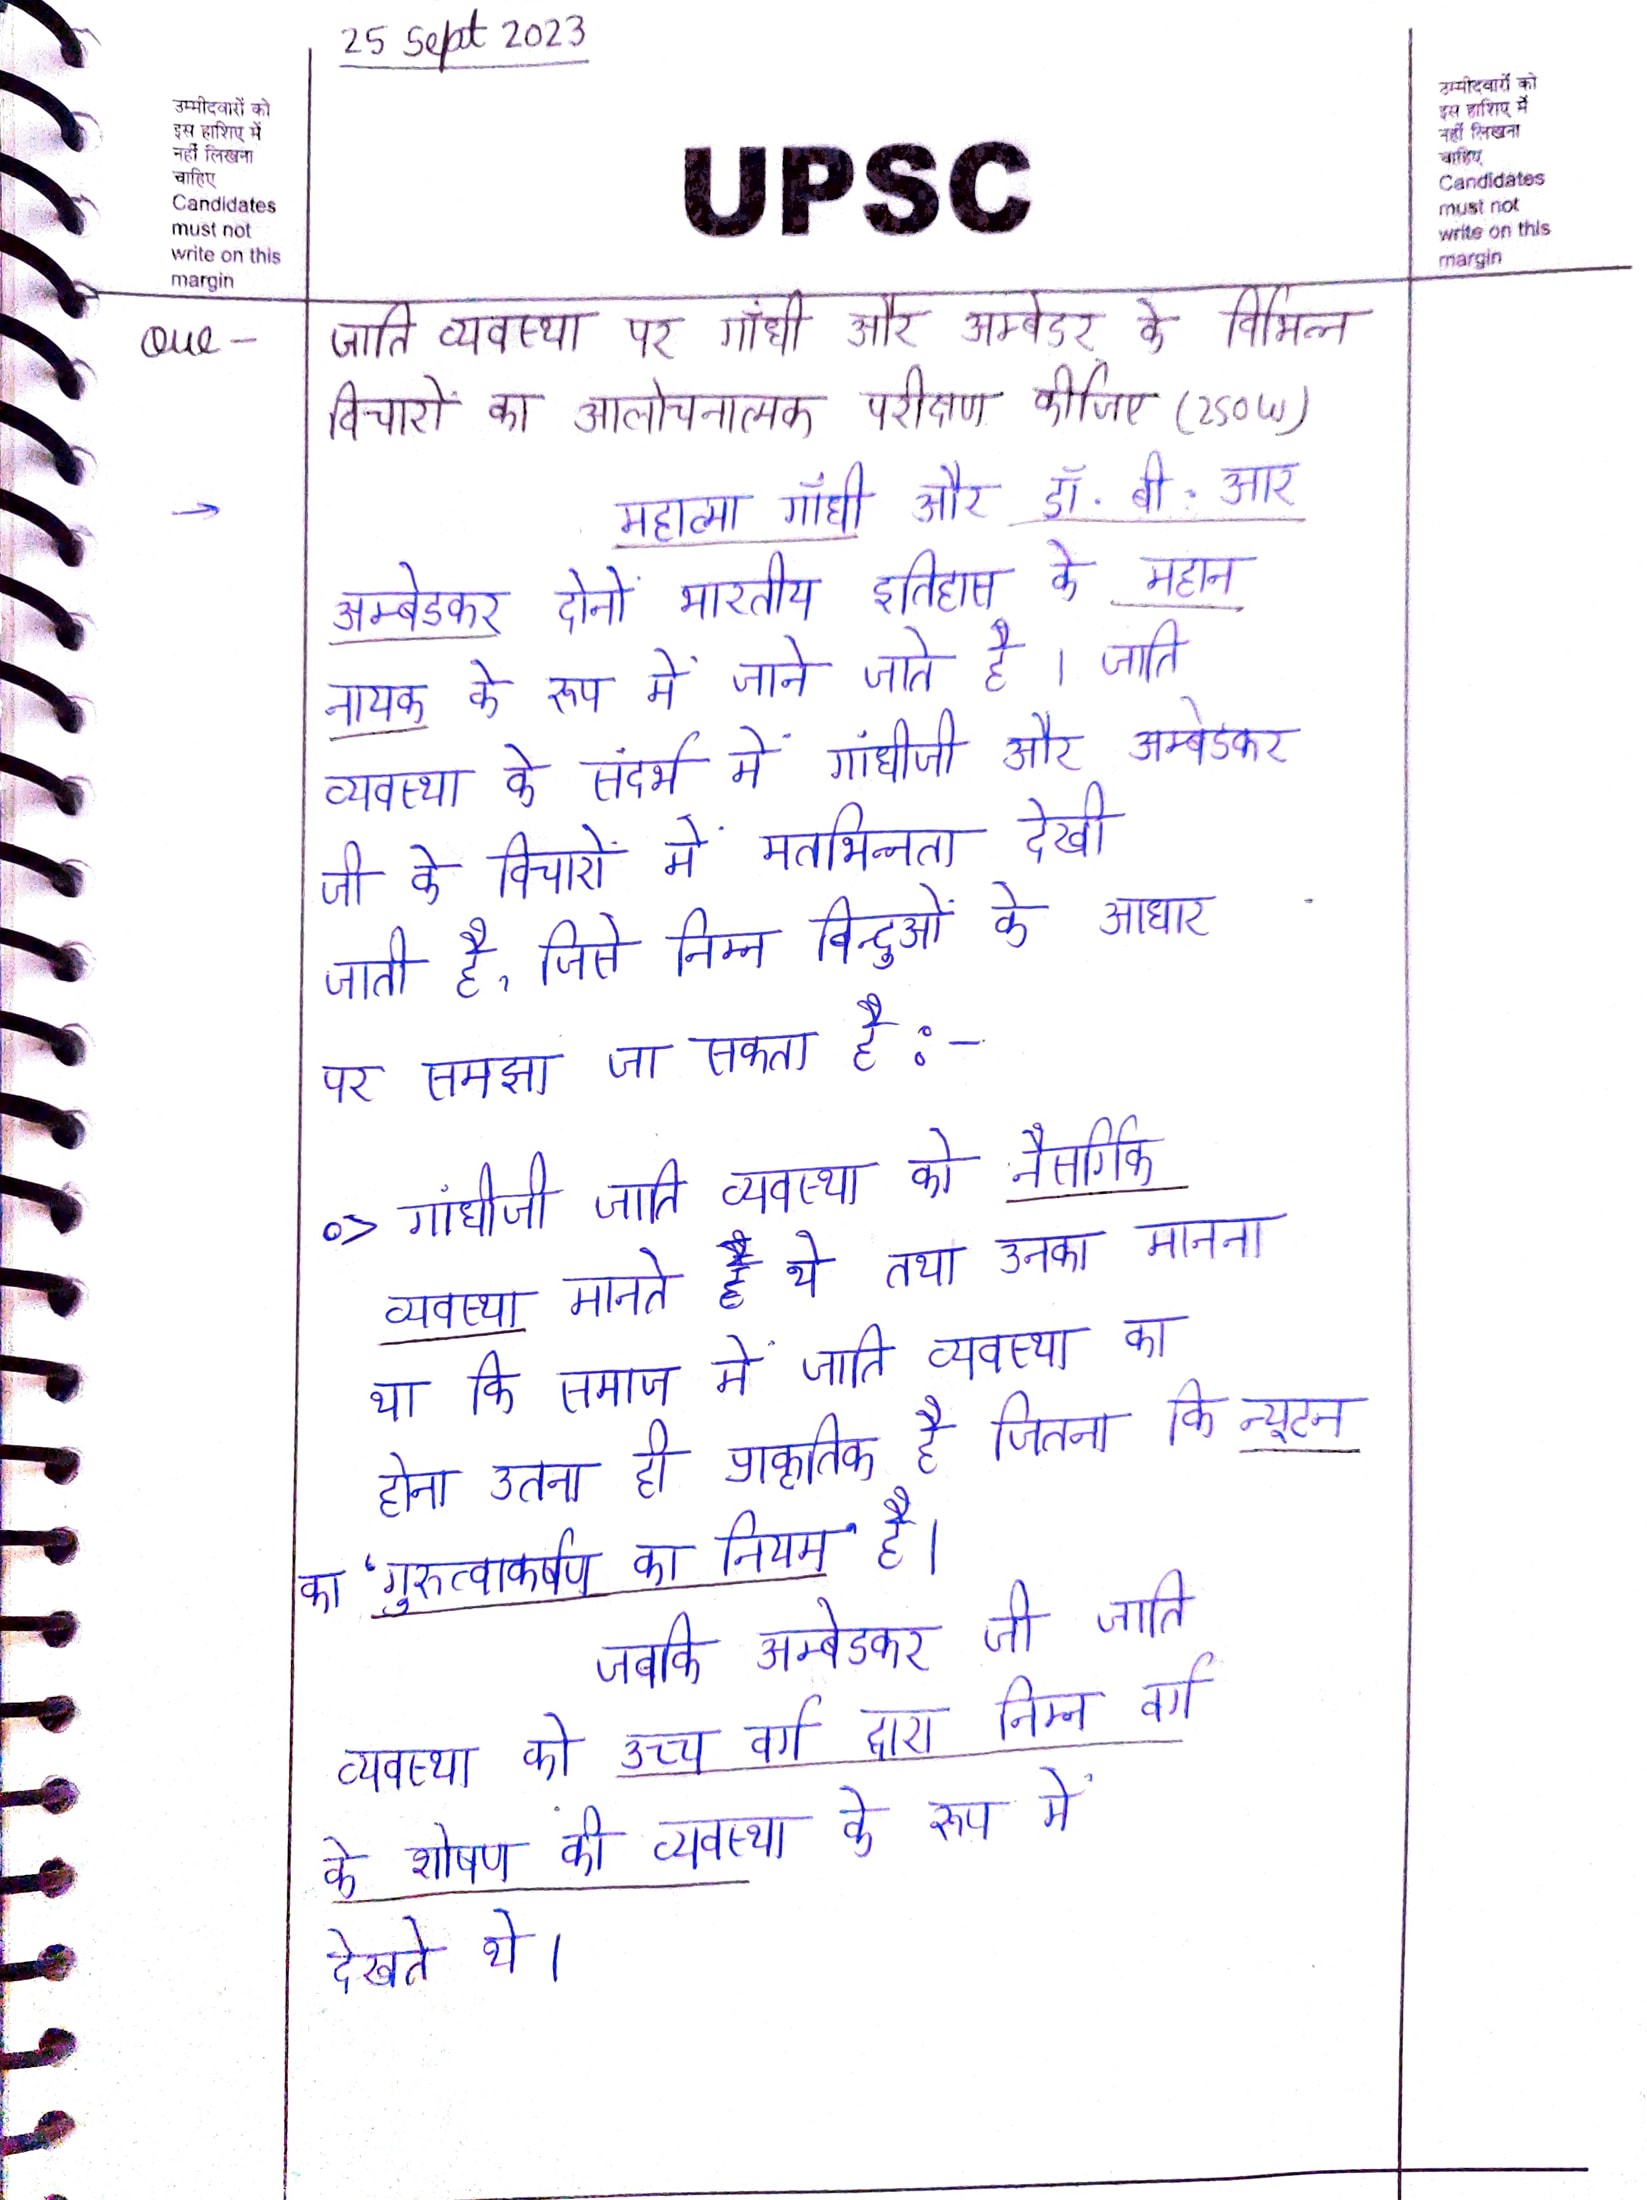 25 Sept 2023
उम्मीदवारों को
इस हाशिए में
नहीं लिखना
चाहिए
Candidates
must not
write on this
margin
UPSC
उम्मीदवारों को
इस हाशिए में
नहीं लिखना
चाहिए
Candidates
must not
write on this
margin
Que - जाति व्यवस्था पर गाँधी और अम्बेडर के विभिन्न
विचारों का आलोचनात्मक परीक्षण कीजिए (250W)
→ महात्मा गाँधी और डॉ. बी. आर
अम्बेडकर दोनों भारतीय इतिहास के महान
नायक के रूप में जाने जाते है । जाति
व्यवस्था के संदर्भ में गांधीजी और अम्बेडकर
जी के विचारों में मतभिन्नता देखी
जाती है, जिसे निम्न बिन्दुओं के आधार
पर समझा जा सकता है :-
०> गांधीजी जाति व्यवस्था को नैसर्गिक
व्यवस्था मानते है थे तथा उनका मानना
था कि समाज में जाति व्यवस्था का
होना उतना ही प्राकृतिक है जितना कि न्यूटन
का 'गुरुत्वाकर्षण का नियम' है।
जबकि अम्बेडकर जी जाति
व्यवस्था को उच्च वर्ग द्वारा निम्न वर्ग
के शोषण की व्यवस्था के रूप में
देखते थे।